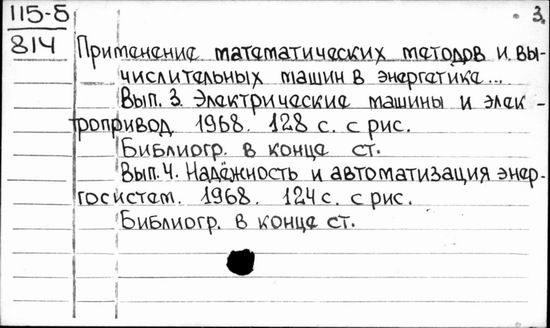 115-б
3.
814
Применение математических методов и вы-
числительных машин в энергетике...
Вып. 3. Электрические машины и элек-
тропривод 1968. 128 с. с рис.
Библиогр. в конце ст.
Вып. 4. Надёжность и автоматизация энер-
госистем. 1968. 124 с. с рис.
Библиогр. в конце ст.